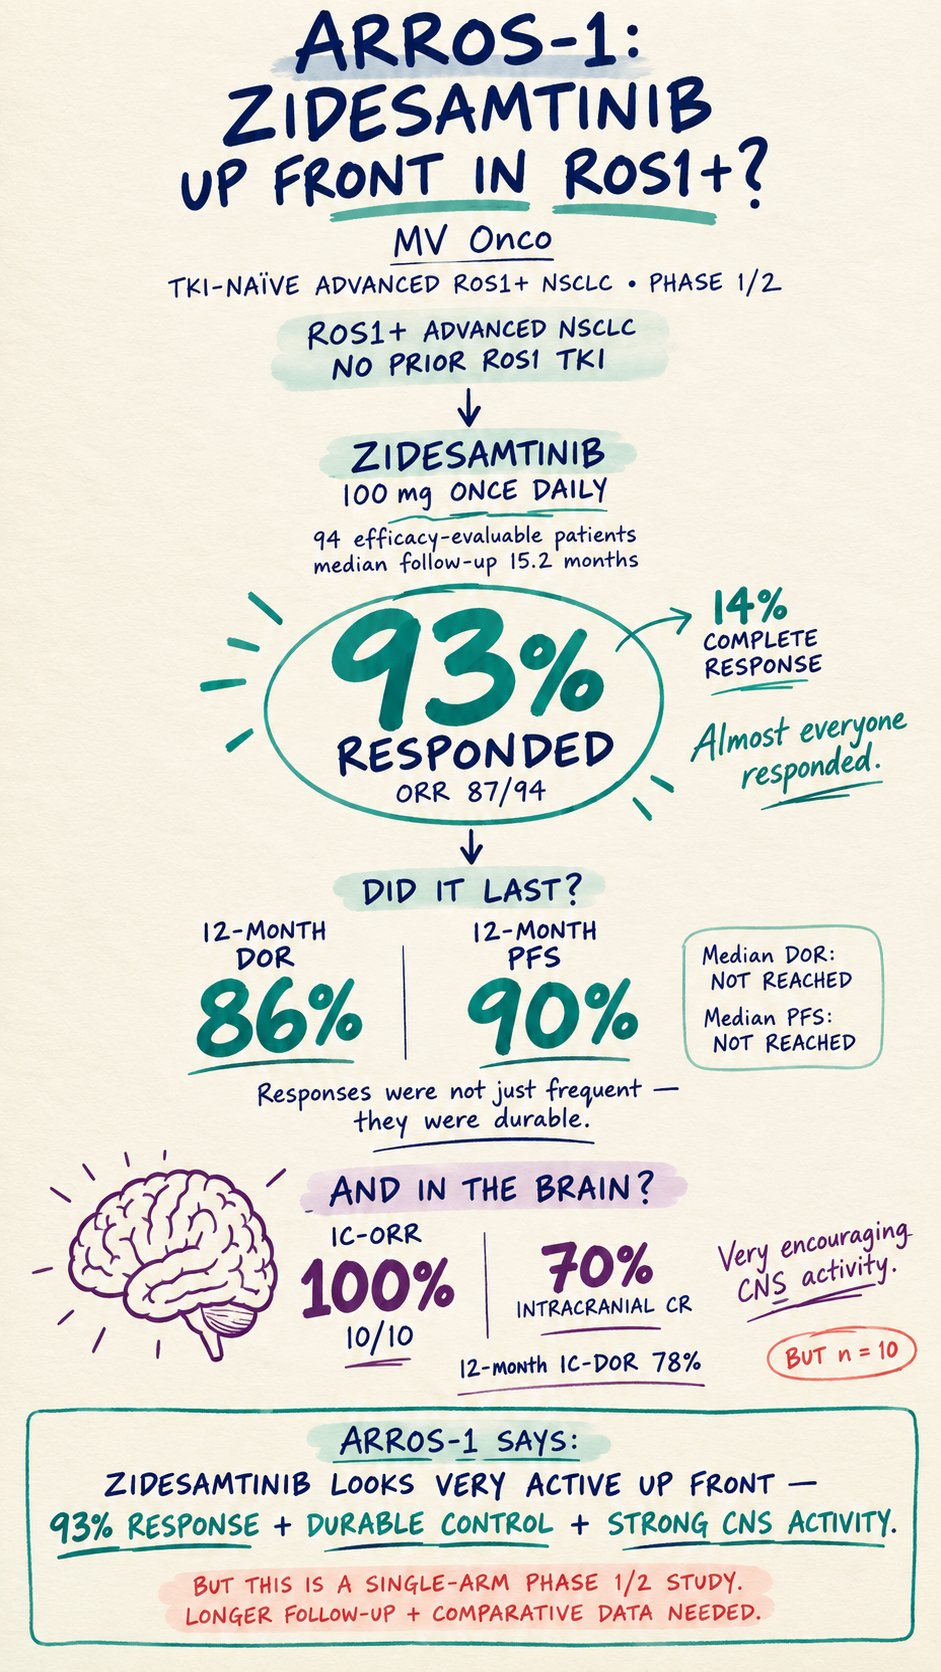 ARROS-1:
ZIDESAMTINIB
UP FRONT IN ROS1+?
MV Onco
TKI-NAÏVE ADVANCED ROS1+ NSCLC • PHASE 1/2
ROS1+ ADVANCED NSCLC
NO PRIOR ROS1 TKI
ZIDESAMTINIB
100 mg ONCE DAILY
94 efficacy-evaluable patients
median follow-up 15.2 months
93%
RESPONDED
ORR 87/94
14%
COMPLETE
RESPONSE
Almost everyone
responded.
DID IT LAST?
12-MONTH
DOR
86%
12-MONTH
PFS
90%
Median DOR:
NOT REACHED
Median PFS:
NOT REACHED
Responses were not just frequent —
they were durable.
AND IN THE BRAIN?
IC-ORR
100%
10/10
70%
INTRACRANIAL CR
12-month IC-DOR 78%
Very encouraging
CNS activity.
BUT n = 10
ARROS-1 SAYS:
ZIDESAMTINIB LOOKS VERY ACTIVE UP FRONT —
93% RESPONSE + DURABLE CONTROL + STRONG CNS ACTIVITY.
BUT THIS IS A SINGLE-ARM PHASE 1/2 STUDY.
LONGER FOLLOW-UP + COMPARATIVE DATA NEEDED.